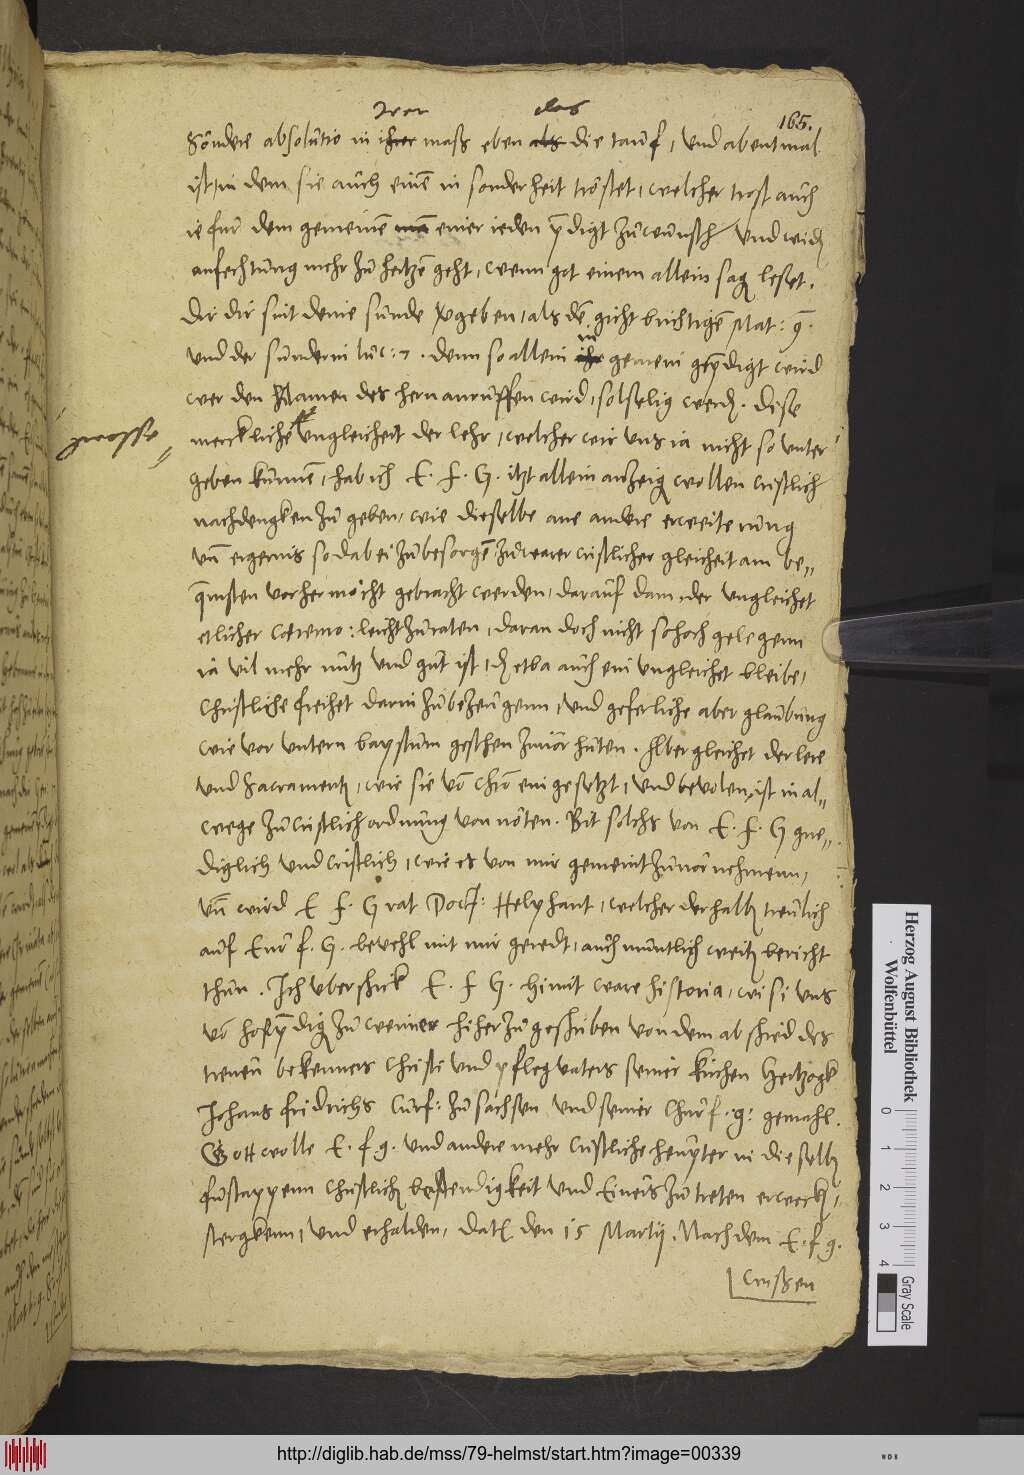 165.
irer das
Sondere absolutio in ihrer maß eben als die tauf, und abentmal
ist, in dem sie auch einē in sonderheit tröstet, welcher trost auch
ie fur dem gemeinē einer ieden p̄digt zuwunsch und wid
anfechtung mehr zu hertzē geht, wenn got einem allein sag leset.
Dir dir sint deine sunde v̄geben, als dē gicht bruchtigē Mat: 9.
in
und der sunderin luc: 7. denn so allein ihr gemein gep̄digt wird
wer den Namen des hern anruffen wird, sol selig werd. Dise
grosse
merckliche ungleicheit der lehr, welcher wir uns ia nicht so unter
geben kunnē, hab ich E. F. G. itzt allein anzeig wollen cristlich
nachdengken zu geben, wie dieselbe ane andere erweiterung
un̄ ergernis so dabei zubesorgē zu warer cristlicher gleicheit am be„
q̄msten vorher möcht gebracht werden, darauf dann der ungleichet
etlicher Ceremo: leicht zuraten, daran doch nicht so hoch gelegenn
ia vil mehr nutz und gut ist, d etwa auch ein ungleichet bleibe,
Christliche freihet darin zubezeugenn, und geferliche aber glaubung
wie vor unterm bapstum geschen zuuor huten. Aber gleichet der lere
und Sacrament, wie sie vō Chrō eingesetzt, und bevolen, ist in al„
wege zu cristlich ordnung von nöten. Bit solchs von E. F. G gne„
diglich und cristlich, wie es von mir gemeint zuuornehmenn,
un̄ wird E F. G rat Doct: Helphant, welcher derhalb treulich
auf Eur f. G. bevehl mit mir geredt, auch muntlich weit bericht
thun. Ich uberschick E. F G. himit ware historia, wi si uns
vō hofp̄dig zu weimer hiher zugeschriben von dem abschied des
treuen bekenners Christi und pflegvaters seiner kirchen Hertzogk
Johans fridrichs Curf: zu sachsen und seiner Churf. g: gemahl.
Gott wolle E. f. g. und andere mehr cristliche heupter in dieselb
fusstappenn christlich bestendigkeit und Einers zutreten erweck,
stergkenn, und erhalden, Dat den 15 Martij. Nach dem E. f. g.
Herzog August Bibliothek
Wolfenbüttel
0 1 2 3 4
Gray Scale
http://diglib.hab.de/mss/79-helmst/start.htm?image=00339
WDB